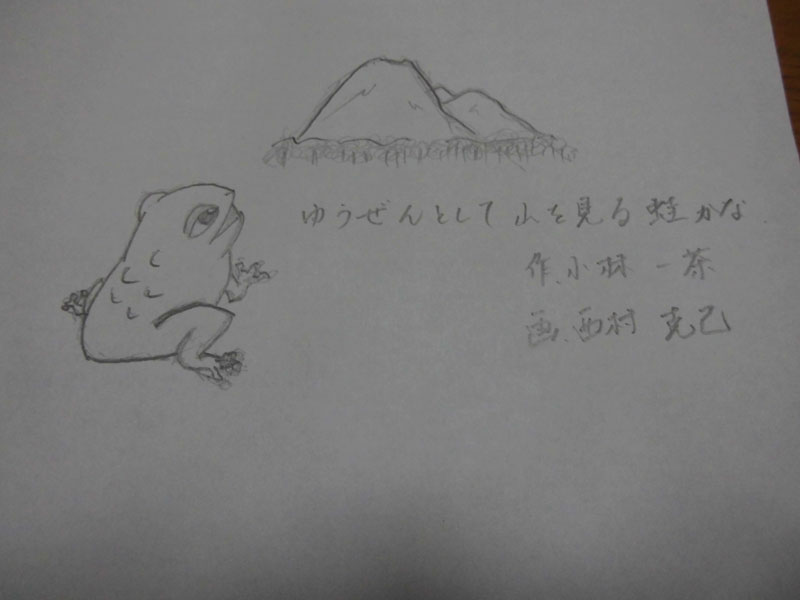 ゆうぜんとして山を見る蛙かな.
作.小林一茶
画.西村克己